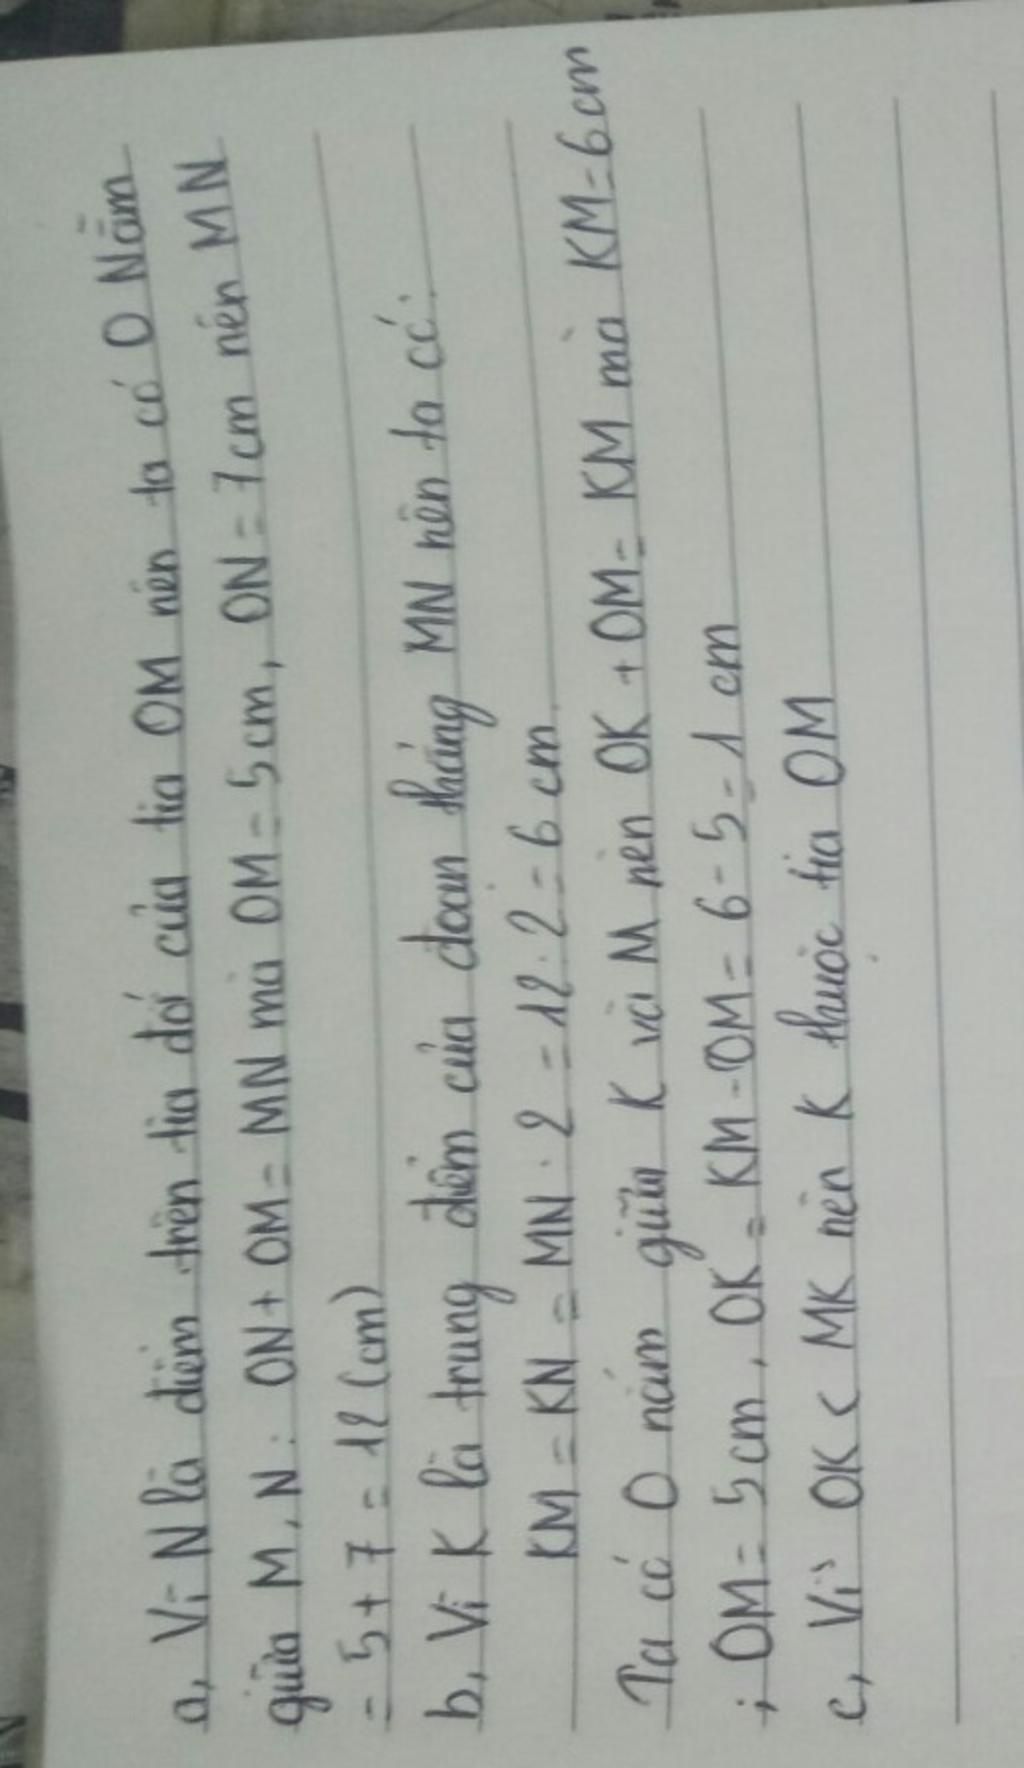 a, Vì N là điểm trên tia đối của tia OM nên ta có O Nằm
giữa M, N: ON + OM = MN mà OM = 5cm, ON = 7cm nên MN
= 5 + 7 = 12 (cm)
b, Vì K là trung điểm của đoạn thẳng MN nên ta có:
KM = KN = MN : 2 = 12 : 2 = 6 cm
Ta có O nằm giữa K và M nên OK + OM = KM mà KM = 6cm
; OM = 5cm, OK = KM - OM = 6 - 5 = 1 cm
c, Vì OK < MK nên K thuộc tia OM